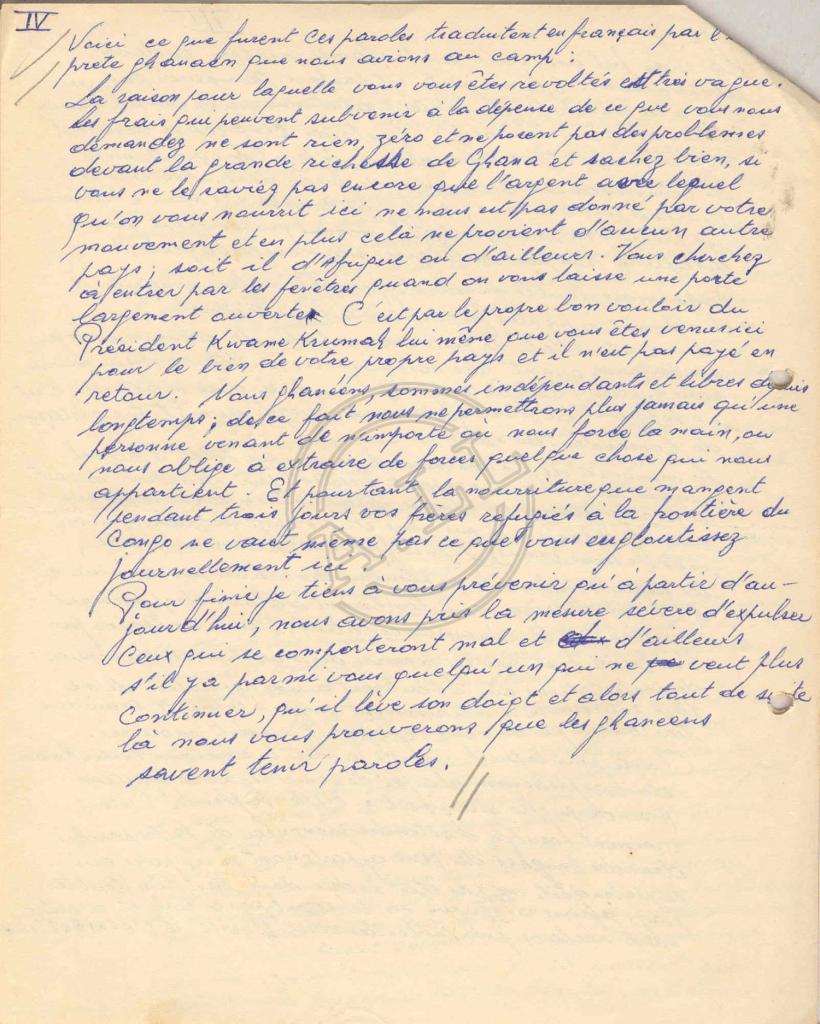 IV
Voici ce que furent ces paroles traduitent en français par l'
prete ghanaen que nous avions au camp :
La raison pour laquelle vous vous êtes revoltés est très vague.
Les frais qui peuvent subvenir à la dépense de ce que vous nous
demandez ne sont rien, zéro et ne posent pas des problemes
devant la grande richesse de Ghana et sachez bien, si
vous ne le saviez pas encore que l'argent avec lequel
qu'on vous nourrit ici ne nous est pas donné par votre
mouvement et en plus celà ne provient d'aucun autre
pays ; soit il d'Afrique ou d'ailleurs. Vous cherchez
à entrer par les fenêtres quand on vous laisse une porte
largement ouverte. C'est par le propre bon vouloir du
Président Kwame Krumah lui même que vous êtes venus ici
pour le bien de votre propre pays et il n'est pas payé en
retour. Nous ghanéens, sommes indépendants et libres depuis
longtemps ; de ce fait nous ne permettrons plus jamais qu'une
personne venant de n'importe où nous force la main, ou
nous oblige à extraire de forces quelque chose qui nous
appartient. Et pourtant la nourriture que mangent
pendant trois jours vos frères refugiés à la frontière du
Congo ne vaut même pas ce que vous engloutissez
journellement ici.
Pour finir je tiens à vous prévenir qu'à partir d'au-
jourd'hui, nous avons pris la mesure sévère d'expulser
ceux qui se comporteront mal et d'ailleurs
s'il y a parmi vous quelqu'un qui ne veut plus
continuer, qu'il lève son doigt et alors tout de suite
là nous vous prouverons que les ghaneens
savent tenir paroles.